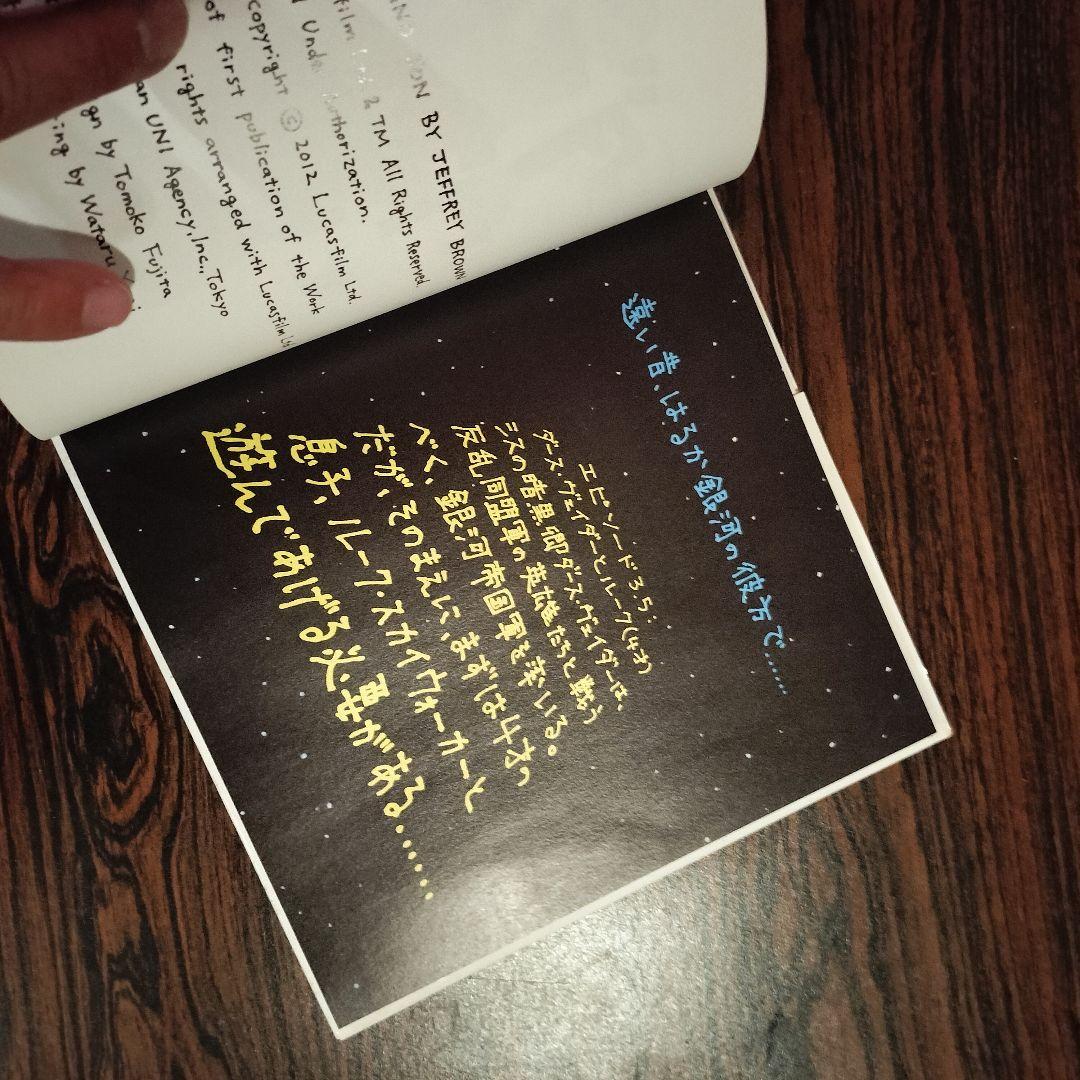 ON BY JEFFREY BROWN
film 2 TM All Rights Reserved
Authorization.
copyright © 2012 Lucasfilm Ltd.
of first publication of the Work
rights arranged with Lucasfilm
an UNI Agency, Inc., Tokyo
gn by Tomoko Fujita
ring by Wataru
遠い昔、はるか銀河の彼方で……
エピソード3.5:
ダース・ヴェイダーとルーク(4才)
シスの暗黒卿ダース・ヴェイダーは、
反乱同盟軍の英雄たちと戦う
べく、銀河帝国軍を率いる。
だが、そのまえに、まずは4才の
息子、ルーク・スカイウォーカーと
遊んであげる必要がある……